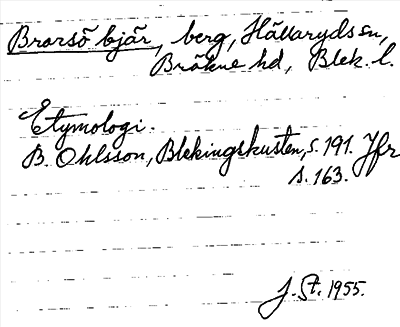 Brorsö bjär, berg, Hällaryds sn,
Bräkne hd, Blek. l.
Etymologi.
B. Ohlsson, Blekingskusten, s. 191. Jfr
s. 163.
J. St. 1955.